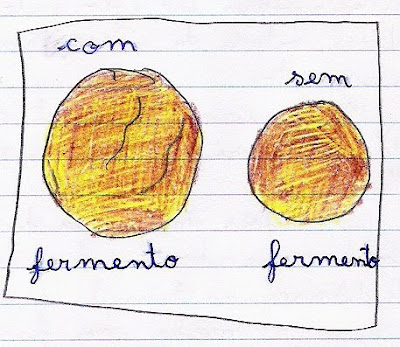 com
fermento
sem
fermento